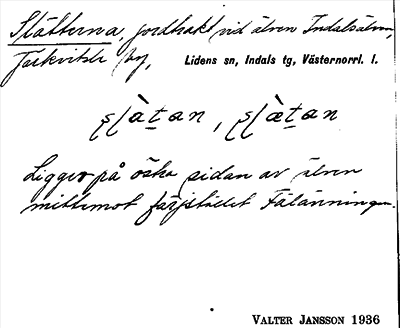 Slåtterna, jordtrakt vid älven Indalsälven,
Järkvitsle by, Lidens sn, Indals tg, Västernorrl. l.
ʂʅàtan, ʂʅætan
Ligger på östra sidan av älven
mittemot färjstället Fälänningen.
VALTER JANSSON 1936